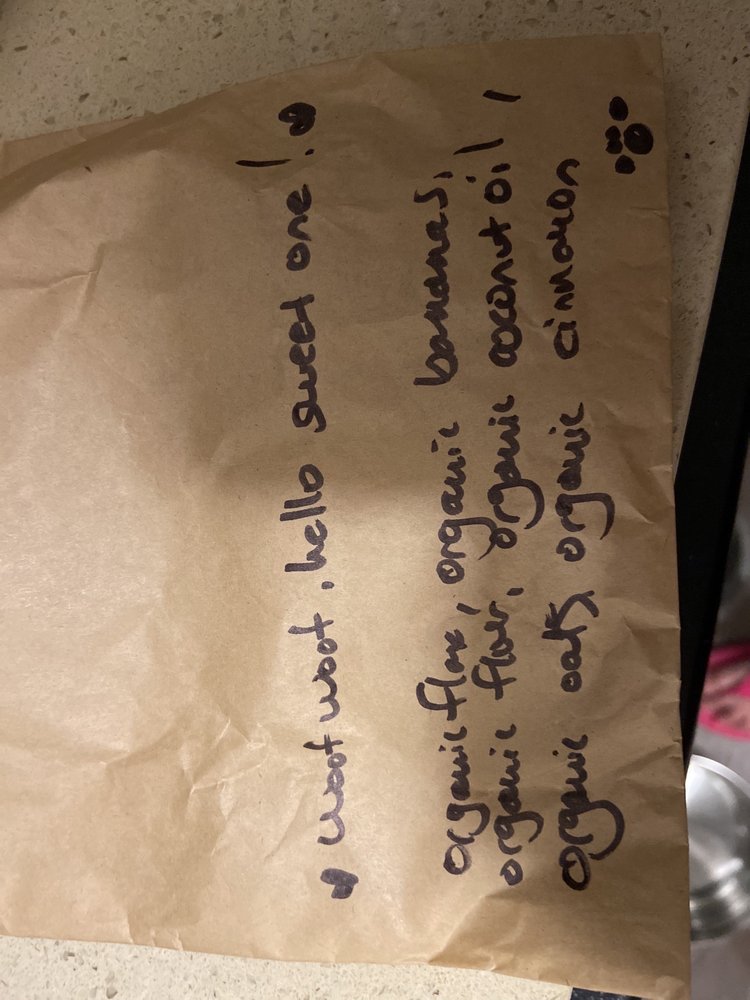 woof woof, hello sweet one!!
organic flax, organic bananas,
organic flour, organic coconut oil,
organic oats, organic cinnamon